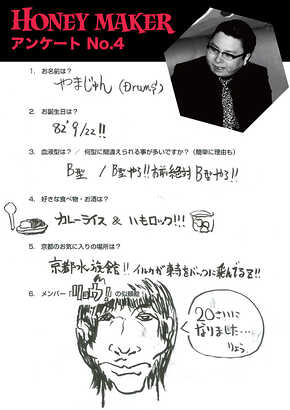 HONEY MAKER
アンケート No.4
1. お名前は?
やまじゅん (Drums)
2. お誕生日は?
82' 9/22!!
3. 血液型は? / 何型に間違えられる事が多いですか? (簡単に理由も)
B型 / B型やろ!!お前絶対B型やろ!!
4. 好きな食べ物・お酒は?
カレーライス & いもロック!!!
5. 京都のお気に入りの場所は?
京都水族館!! イルカが東寺をバックに飛んでるZ!!
6. メンバー「リョウ!」の似顔絵
20さいに
なりました…
りょう